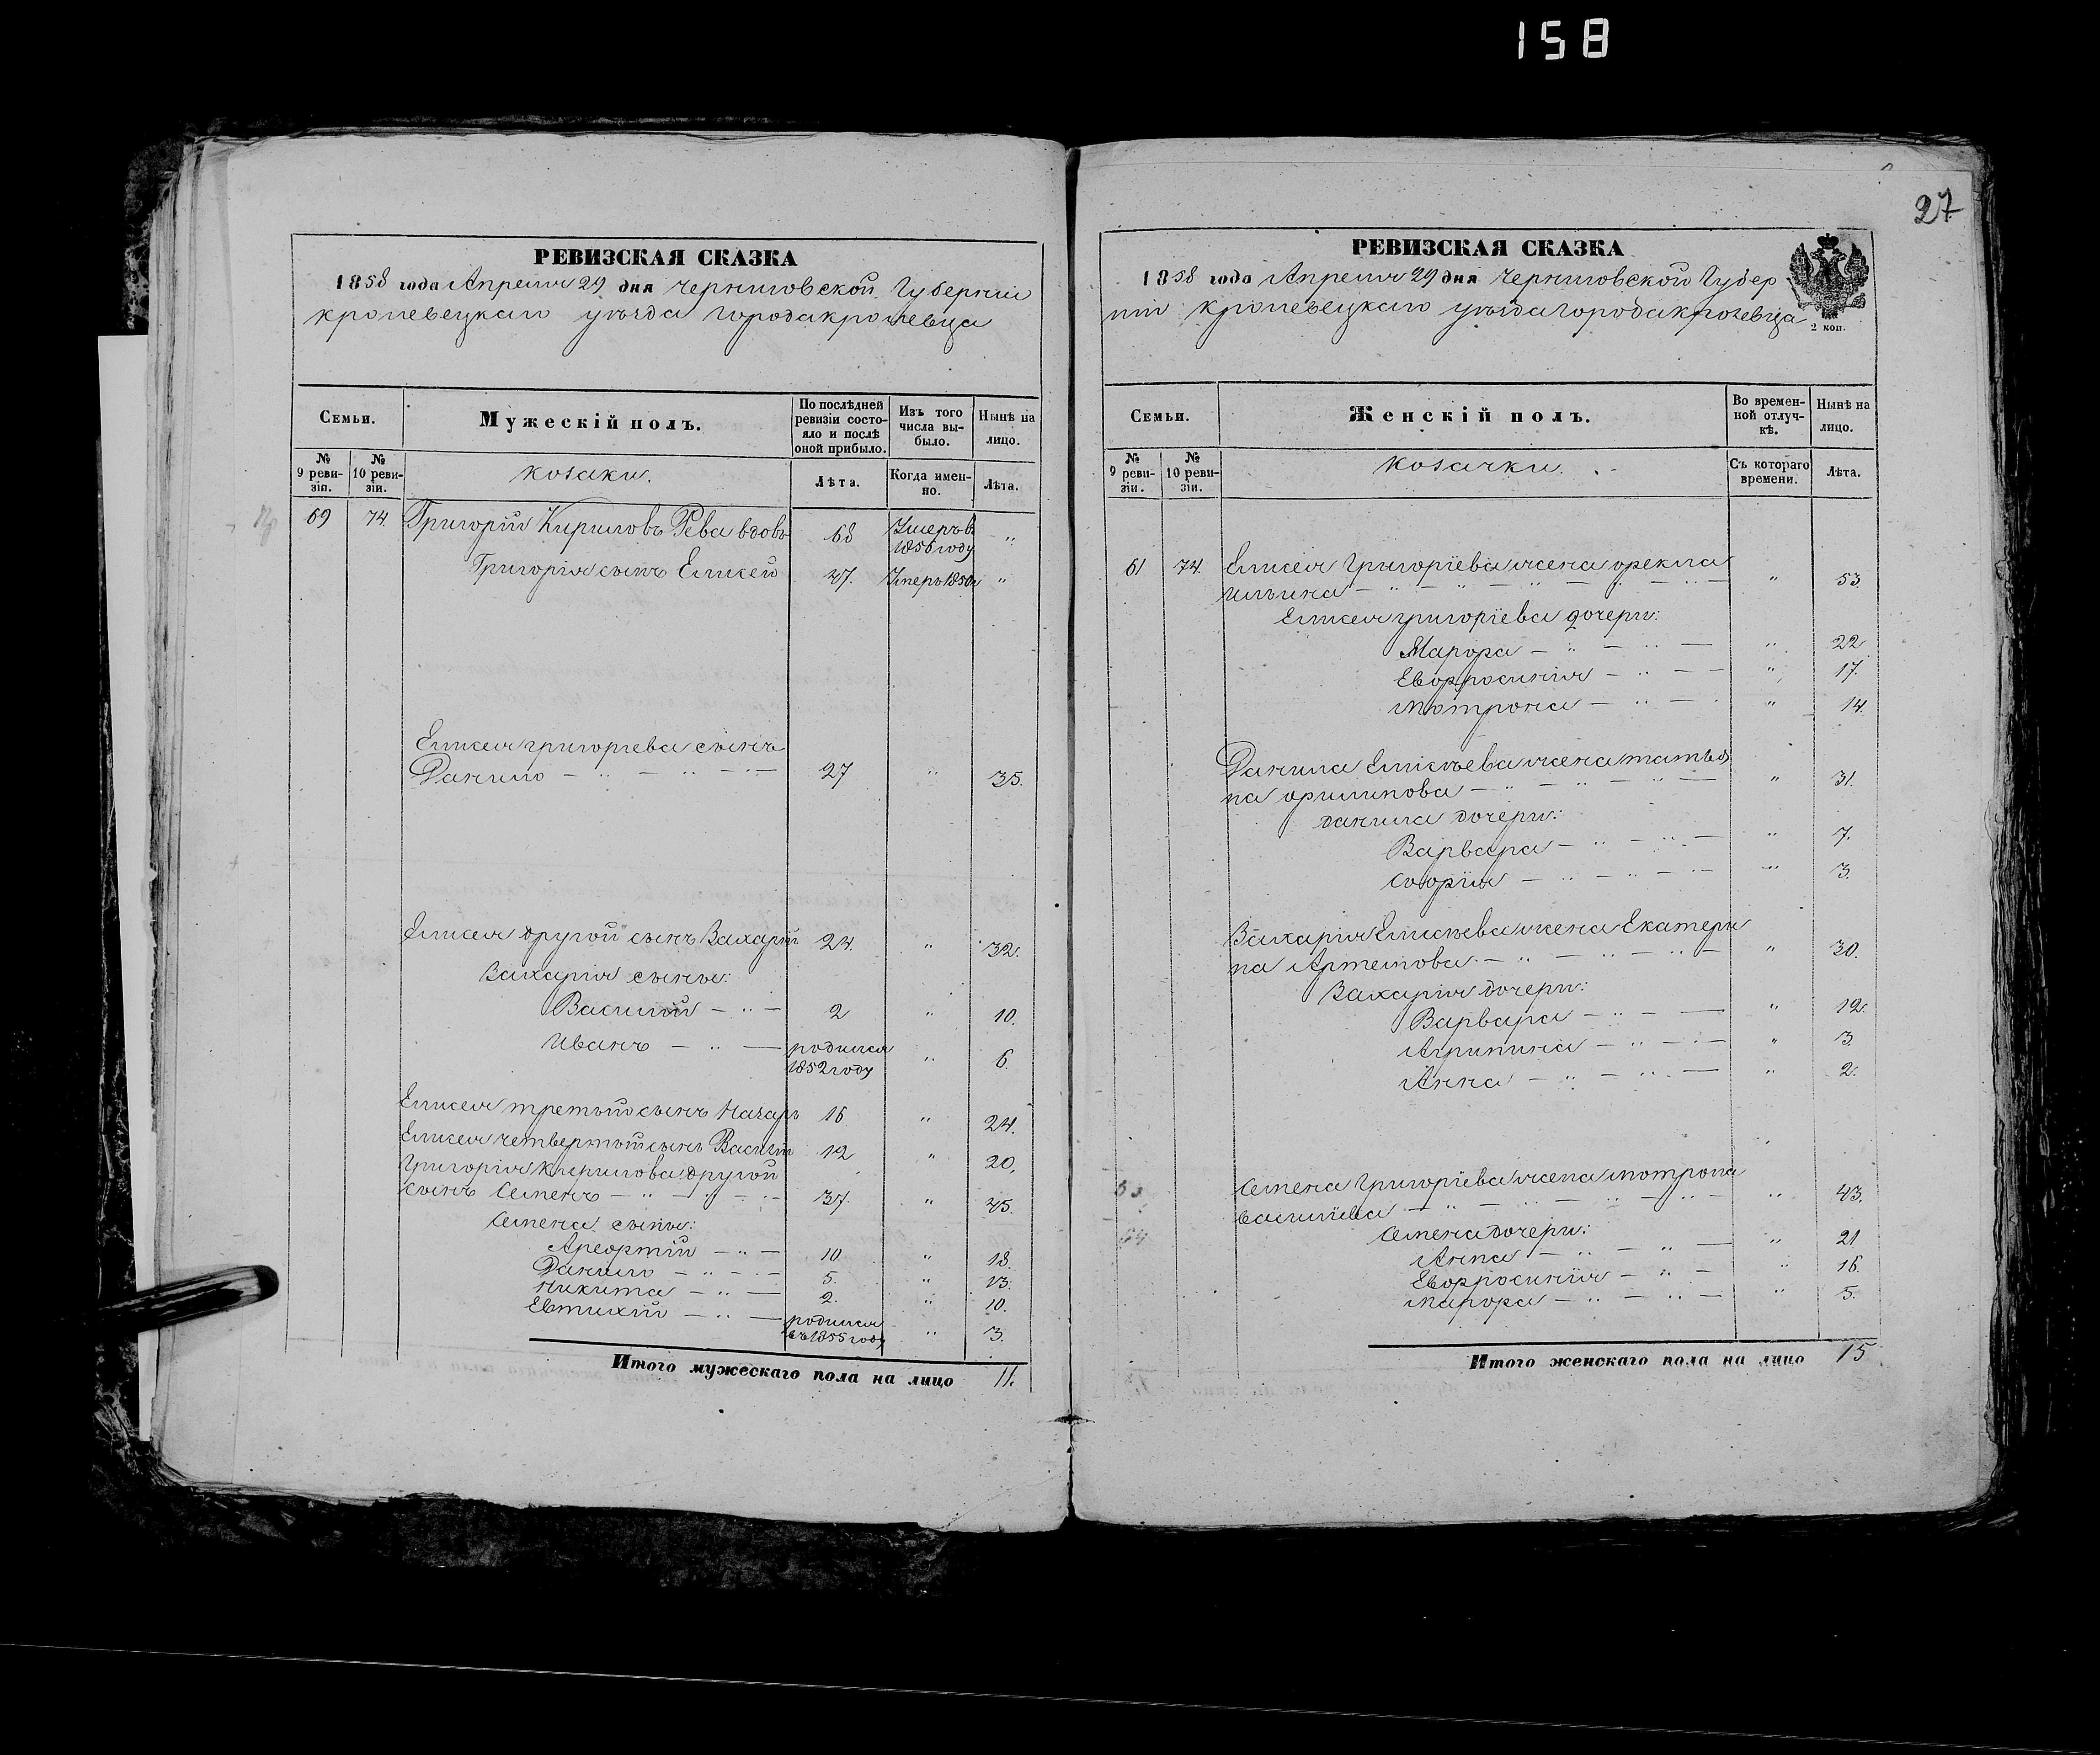 158
27
РЕВИЗСКАЯ СКАЗКА
1858 года Апреля 29 дня Черниговской Губерніи
кролевецкаго уѣзда города кролевца
Семьи.
Мужескій полъ.
По послѣдней ревизіи состояло и послѣ оной прибыло.
Изъ того числа выбыло.
Нынѣ на лицо.
№ 9 ревизіи.
№ 10 ревизіи.
козаки.
Лѣта.
Когда именно.
Лѣта.
69 74 Григорій Кириловъ Рева вдовъ 68 Умеръ въ 1856 году "
Григорія сынъ Елисей 47. Умеръ 1850 "
Елисея григоріева сынъ
Данило — " — " — 27 " 35.
Елисея другой сынъ Захарій 24. " 32.
Захарія сыны:
Василій — " — 2 " 10.
Иванъ — " — родился 1852 году " 6.
Елисея третьій сынъ Назаръ 16 " 24.
Елисея четвертый сынъ Василій 12 " 20.
Григорія Кирилова другой
сынъ Семенъ — " — " — 37. " 45.
Семена сыны:
Арефтій — " — 10 " 18.
Данило — " — 5. " 13.
Никита — " — 2. " 10.
Евтихій — " — родился въ 1855 году " 3.
Итого мужескаго пола на лицо 11.
РЕВИЗСКАЯ СКАЗКА
1858 года Апреля 29 дня Черниговской Губер
ніи кролевецкаго уѣзда города кролевца
2 коп.
Семьи.
Женскій полъ.
Во временной отлучкѣ.
Нынѣ на лицо.
№ 9 ревизіи.
№ 10 ревизіи.
козачки.
Съ котораго времени.
Лѣта.
61 74. Елисея Григоріева жена фекла
ильина — " — " — " — " 53.
Елисея григоріева дочери:
Марфа — " — " — " 22
Евфросинія — " — " 17.
Мотрона — " — " 14.
Данила Елисѣева жена татья
на филипова — " — " — " 31.
данила дочери:
Варвара — " — " — " 7.
Софія — " — " — " 3.
Захарія Елисѣева жена Екатери
на Артемова — " — " — " 30.
Захарія дочери:
Варвара — " — " 12.
Агрипина — " — " 3
Анна — " — " — " 2.
Семена Григоріева жена мотрона
василіева — " — " — " — " 43.
Семена дочери:
Анна — " — " — " 21
Евфросинія — " — " 16.
марфа — " — " — " 5.
Итого женскаго пола на лицо 15